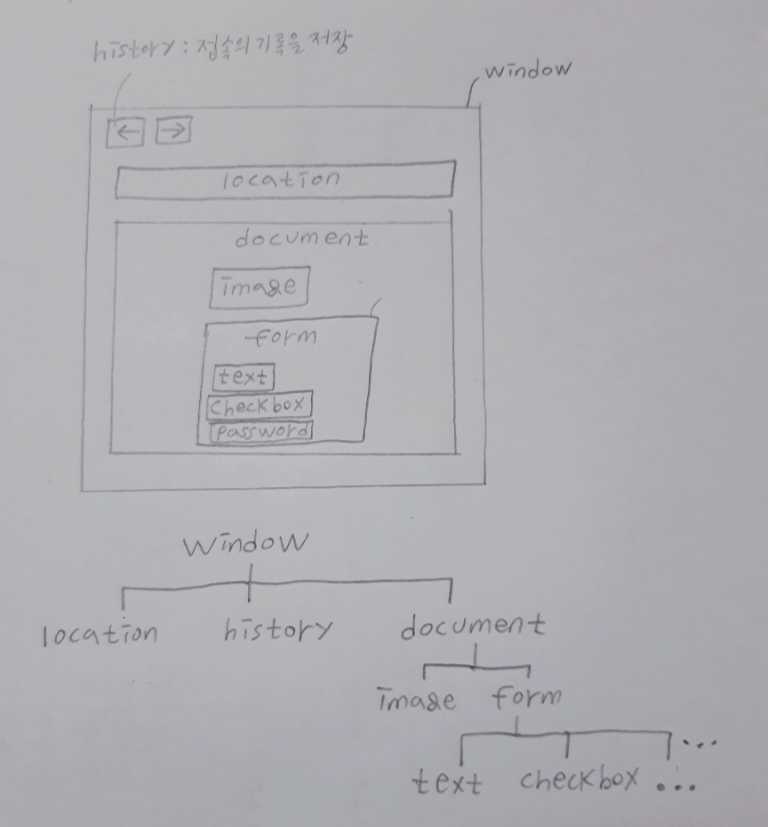 history : 접속의 기록을 저장
window
← →
location
document
image
form
text
checkbox
password
window
location history document
image form
text checkbox ...
...